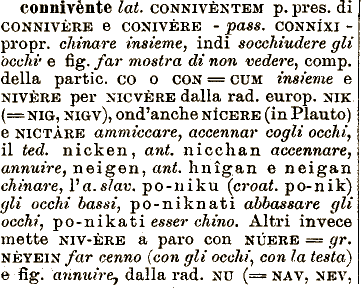 connivènte lat. CONNIVÈNTEM p. pres. di
CONNIVÈRE e CONIVÈRE - pass. CONNÍXI -
propr. chinare insieme, indi socchiudere gli
occhi e fig. far mostra di non vedere, comp.
della partic. CO o CON = CUM insieme e
NIVÈRE per NICVÈRE dalla rad. europ. NIK
(= NIG, NIGV), ond'anche NÍCERE (in Plauto)
e NICTÀRE ammiccare, accennar cogli occhi,
il ted. nicken, ant. nicchan accennare,
annuire, neigen, ant. hnîgan e neigan
chinare, l'a. slav. po-niku (croat. po-nik)
gli occhi bassi, po-niknati abbassare gli
occhi, po-nikati esser chino. Altri invece
mette NIV-ÈRE a paro con NÚERE = gr.
NÈYEIN far cenno (con gli occhi, con la testa)
e fig. annuire, dalla rad. NU (= NAV, NEV,